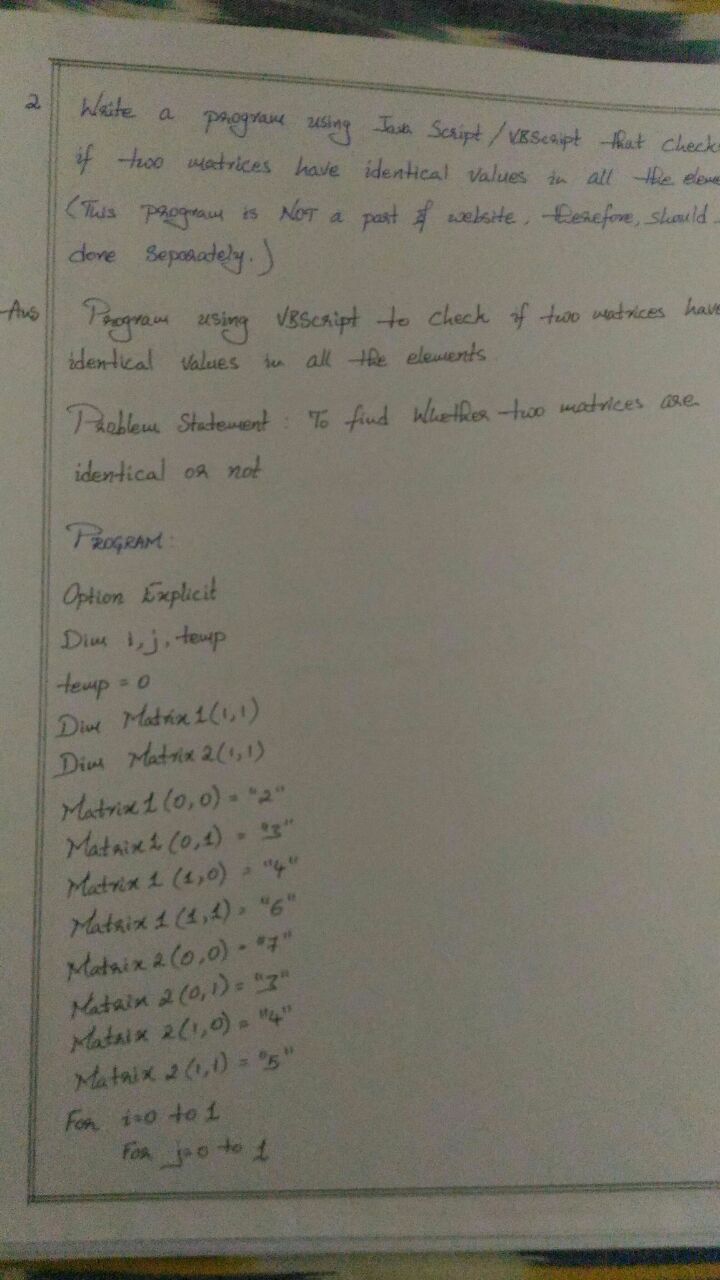 2 Write a program using Java Script/VBScript that check
if two matrices have identical values in all the eleme
(This program is NOT a part of website, therefore, should
done separately.)
Ans Program using VBScript to check if two matrices have
identical values in all the elements.
Problem Statement : To find whether two matrices are
identical or not
PROGRAM:
Option Explicit
Dim i, j, temp
temp = 0
Dim Matrix1(1,1)
Dim Matrix2(1,1)
Matrix1(0,0) = "2"
Matrix1(0,1) = "3"
Matrix1(1,0) = "4"
Matrix1(1,1) = "6"
Matrix2(0,0) = "7"
Matrix2(0,1) = "3"
Matrix2(1,0) = "4"
Matrix2(1,1) = "5"
For i=0 to 1
For j=0 to 1